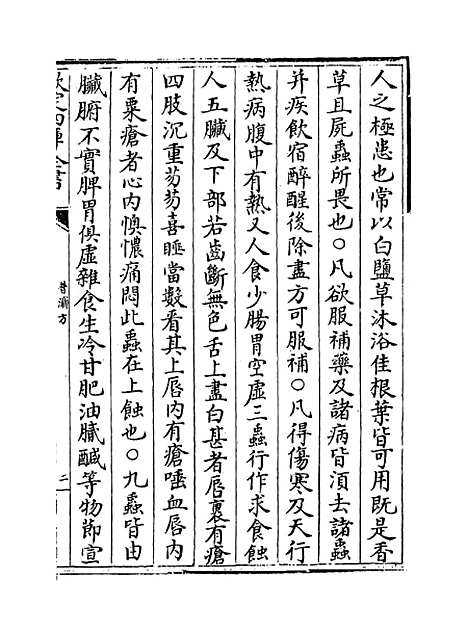 人之極患也常以白鹽草沐浴佳根葉皆可用既是香
草且屍蟲所畏也○凡欲服補藥及諸病皆湏去諸蟲
并疾飲宿醉醒後除盡方可服補○凡得傷寒及天行
熱病腹中有熱又人食少腸胃空虛三蟲行作求食蝕
人五臟及下部若齒齗無色舌上盡白甚者唇裏有瘡
四肢沉重忽忽喜睡當數看其上唇内有瘡唾血唇内
有粟瘡者心内懊憹痛悶此蟲在上蝕也○九蟲皆由
臟腑不實脾胃俱虛雜食生冷甘肥油膩鹹等物節宣
欽定四庫全書
普濟方
二